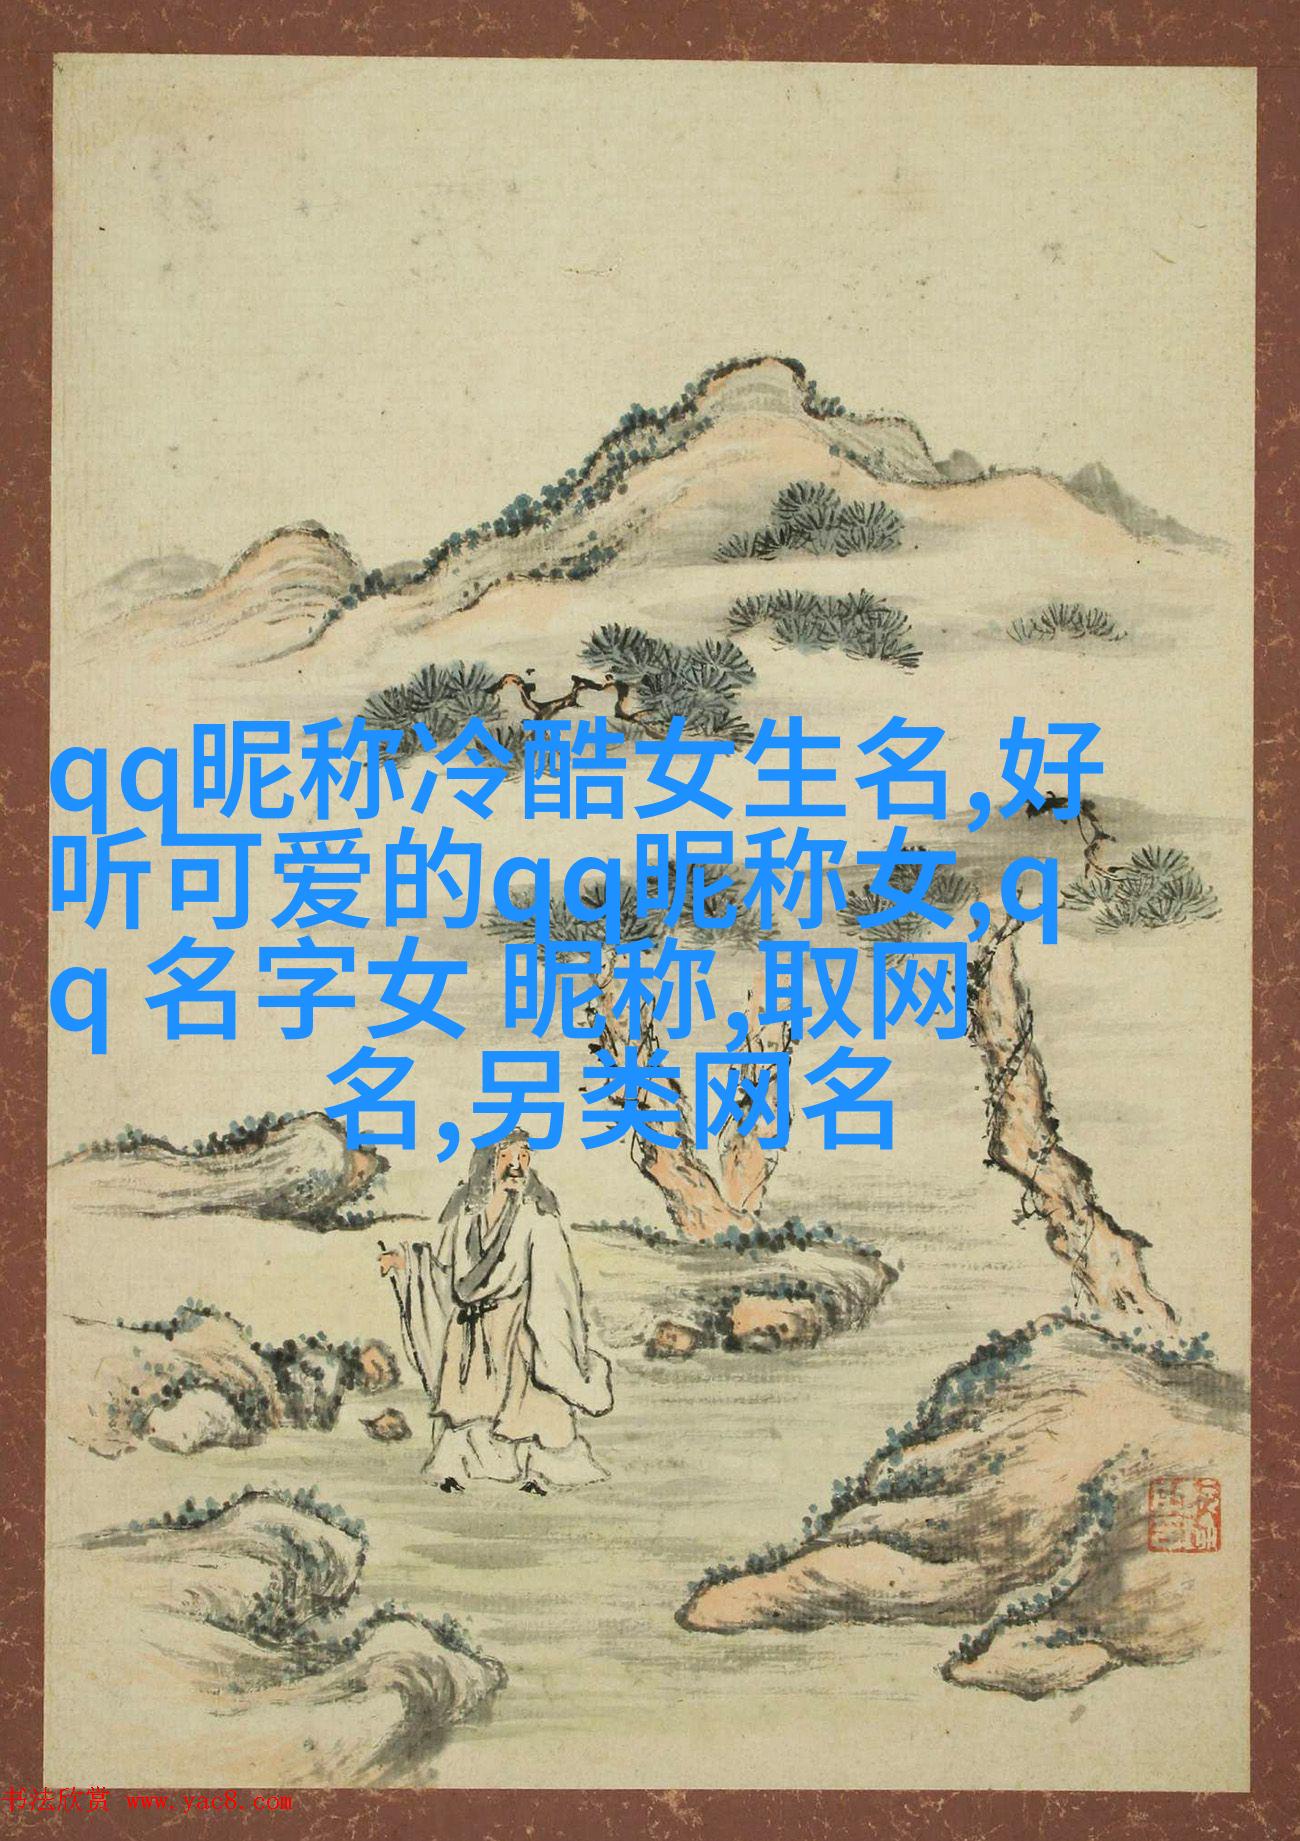 qq昵称冷酷女生名,好
听可爱的qq昵称女,q
q 名字女 昵称,取网
名,另类网名
书法欣赏 www.yac8.com